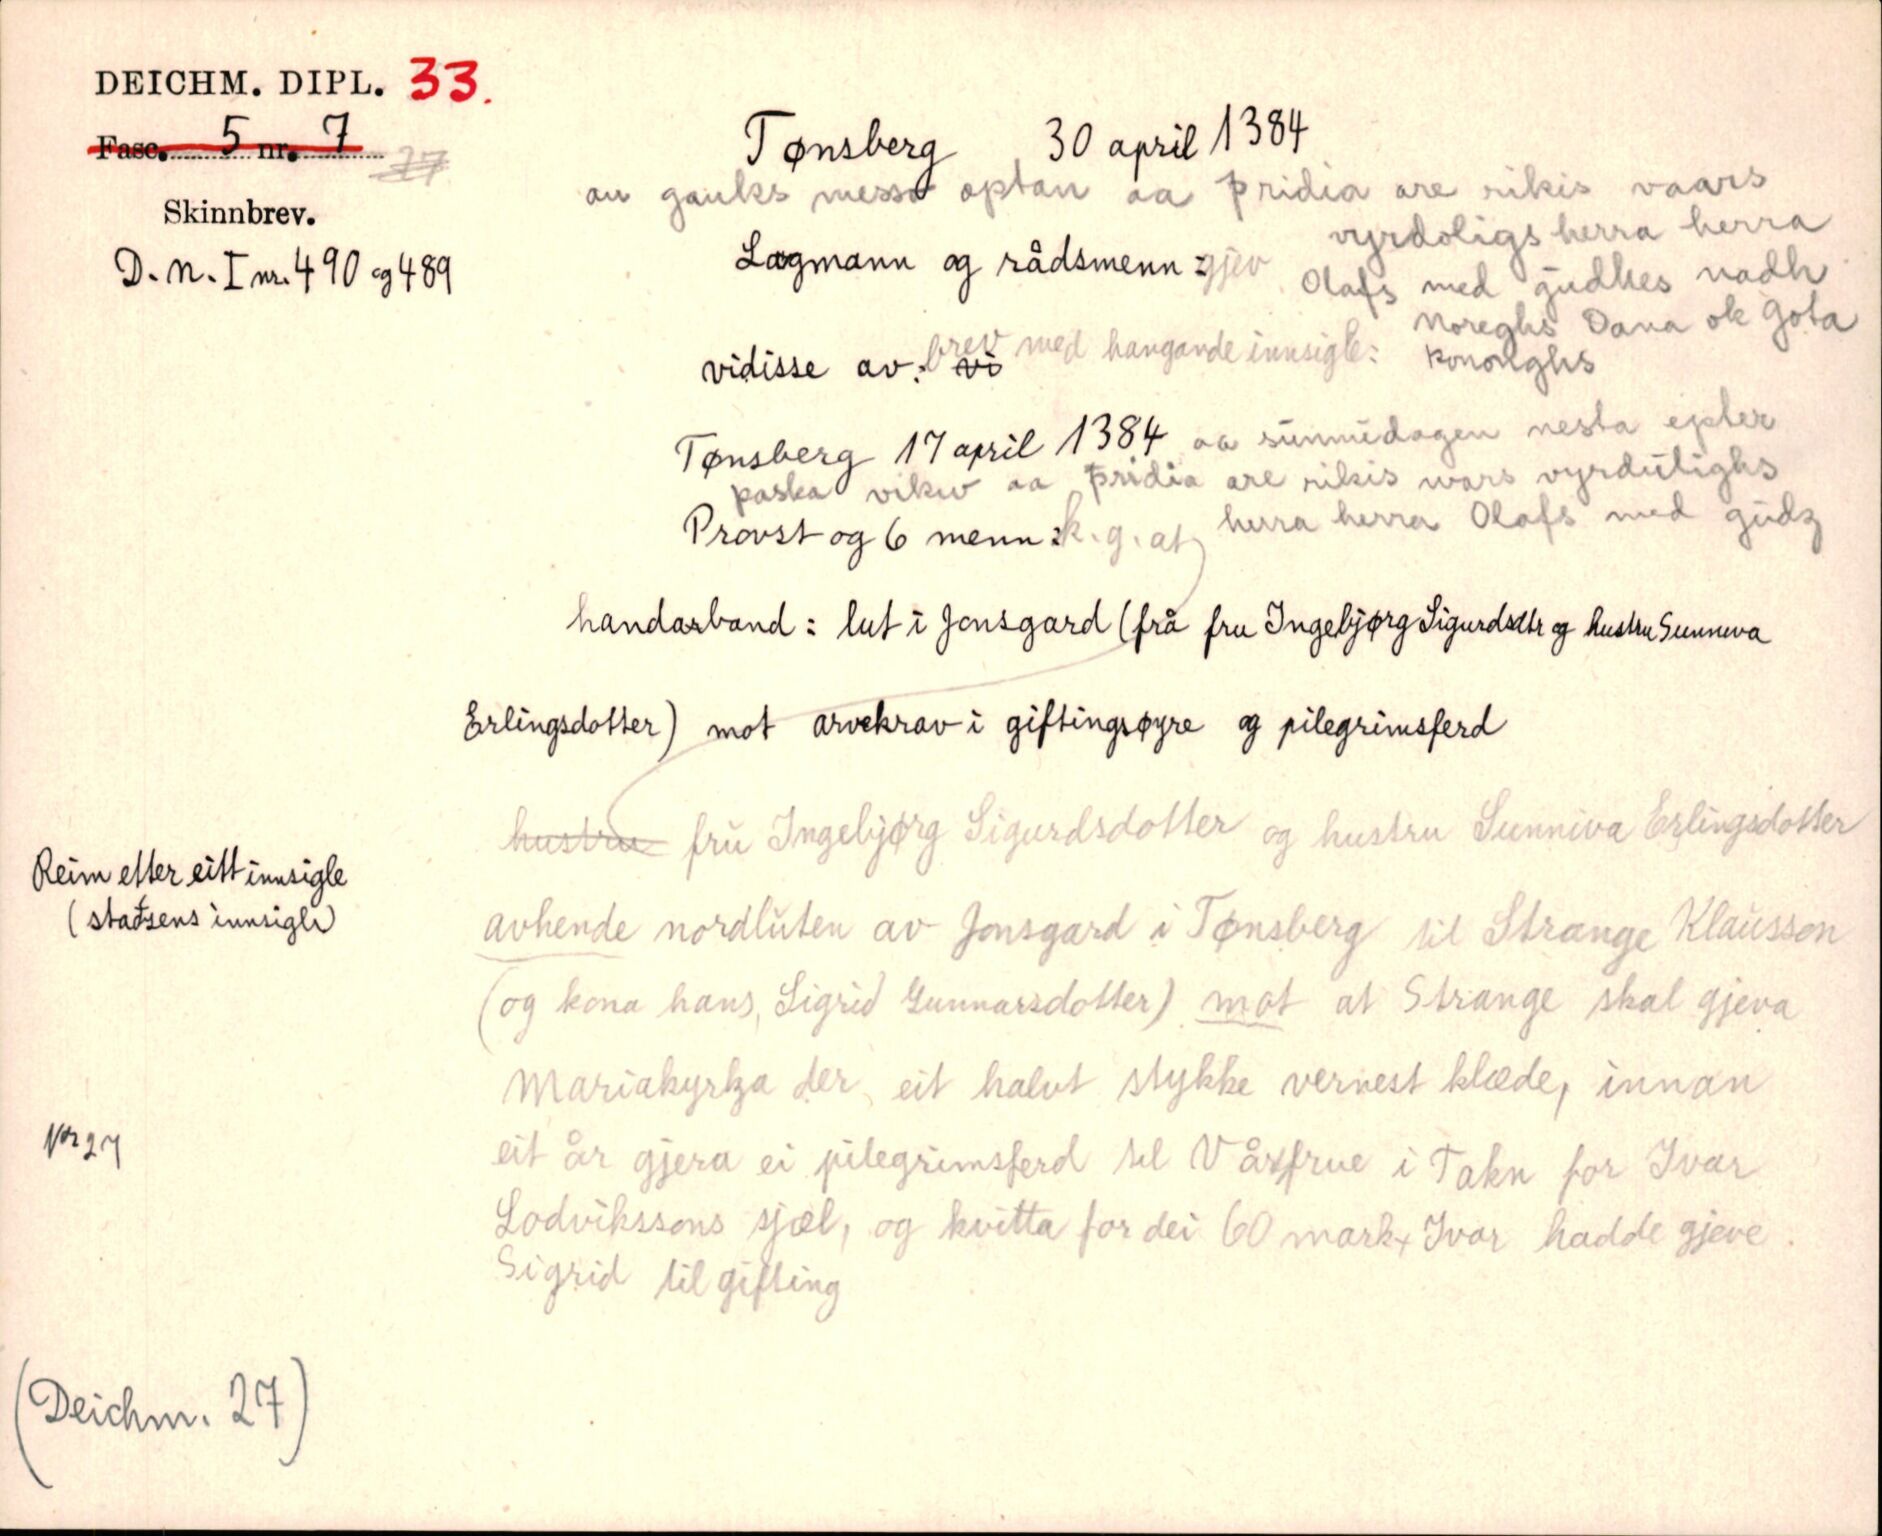 DEICHM. DIPL. 33.
Fasc. 5 nr. 7
27
Skinnbrev.
D. N. I nr. 490 og 489
Tønsberg 30 april 1384
au gauks messo aptan aa þridia are rikis vaars
vyrdoligs herra herra
Lagmann og rådsmenn : gjev
Olafs med gudhes nadh
Noreghs Dana ok Gota
vidisse av : brev vi med hangande innsigle:
kononghs
Tønsberg 17 april 1384 aa sunnudagen nesta epter
paska viku aa þridia are rikis wars vyrdulighs
Provst og 6 menn : k. g. at herra herra Olafs med gudz
handarband : lut i Jonsgard (frå fru Ingebjørg Sigurdsdtr og hustru Sunniva
Erlingsdotter) mot arvekrav i giftingsøyre og pilegrimsferd
hustru fru Ingebjørg Sigurdsdotter og hustru Sunniva Erlingsdotter
avhende nordluten av Jonsgard i Tønsberg til Strange Klausson
(og kona hans, Sigrid Gunnarsdotter) mot at Strange skal gjeva
Mariakyrkja der eit halvt stykke vernest klæde, innan
eit år gjera ei pilegrimsferd til Vårfrue i Takn for Ivar
Lodvikssons sjæl, og kvitta for dei 60 mark, Ivar hadde gjeve
Sigrid til gifting
Reim etter eitt innsigle
(stadsens innsigle)
Nr 27
(Deichm. 27)